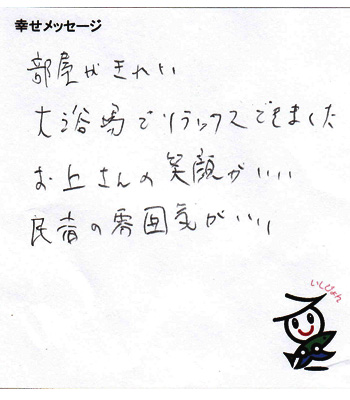 幸せメッセージ
部屋がきれい
大浴場でリラックスできました
お上さんの笑顔がいい
民宿の雰囲気がいい